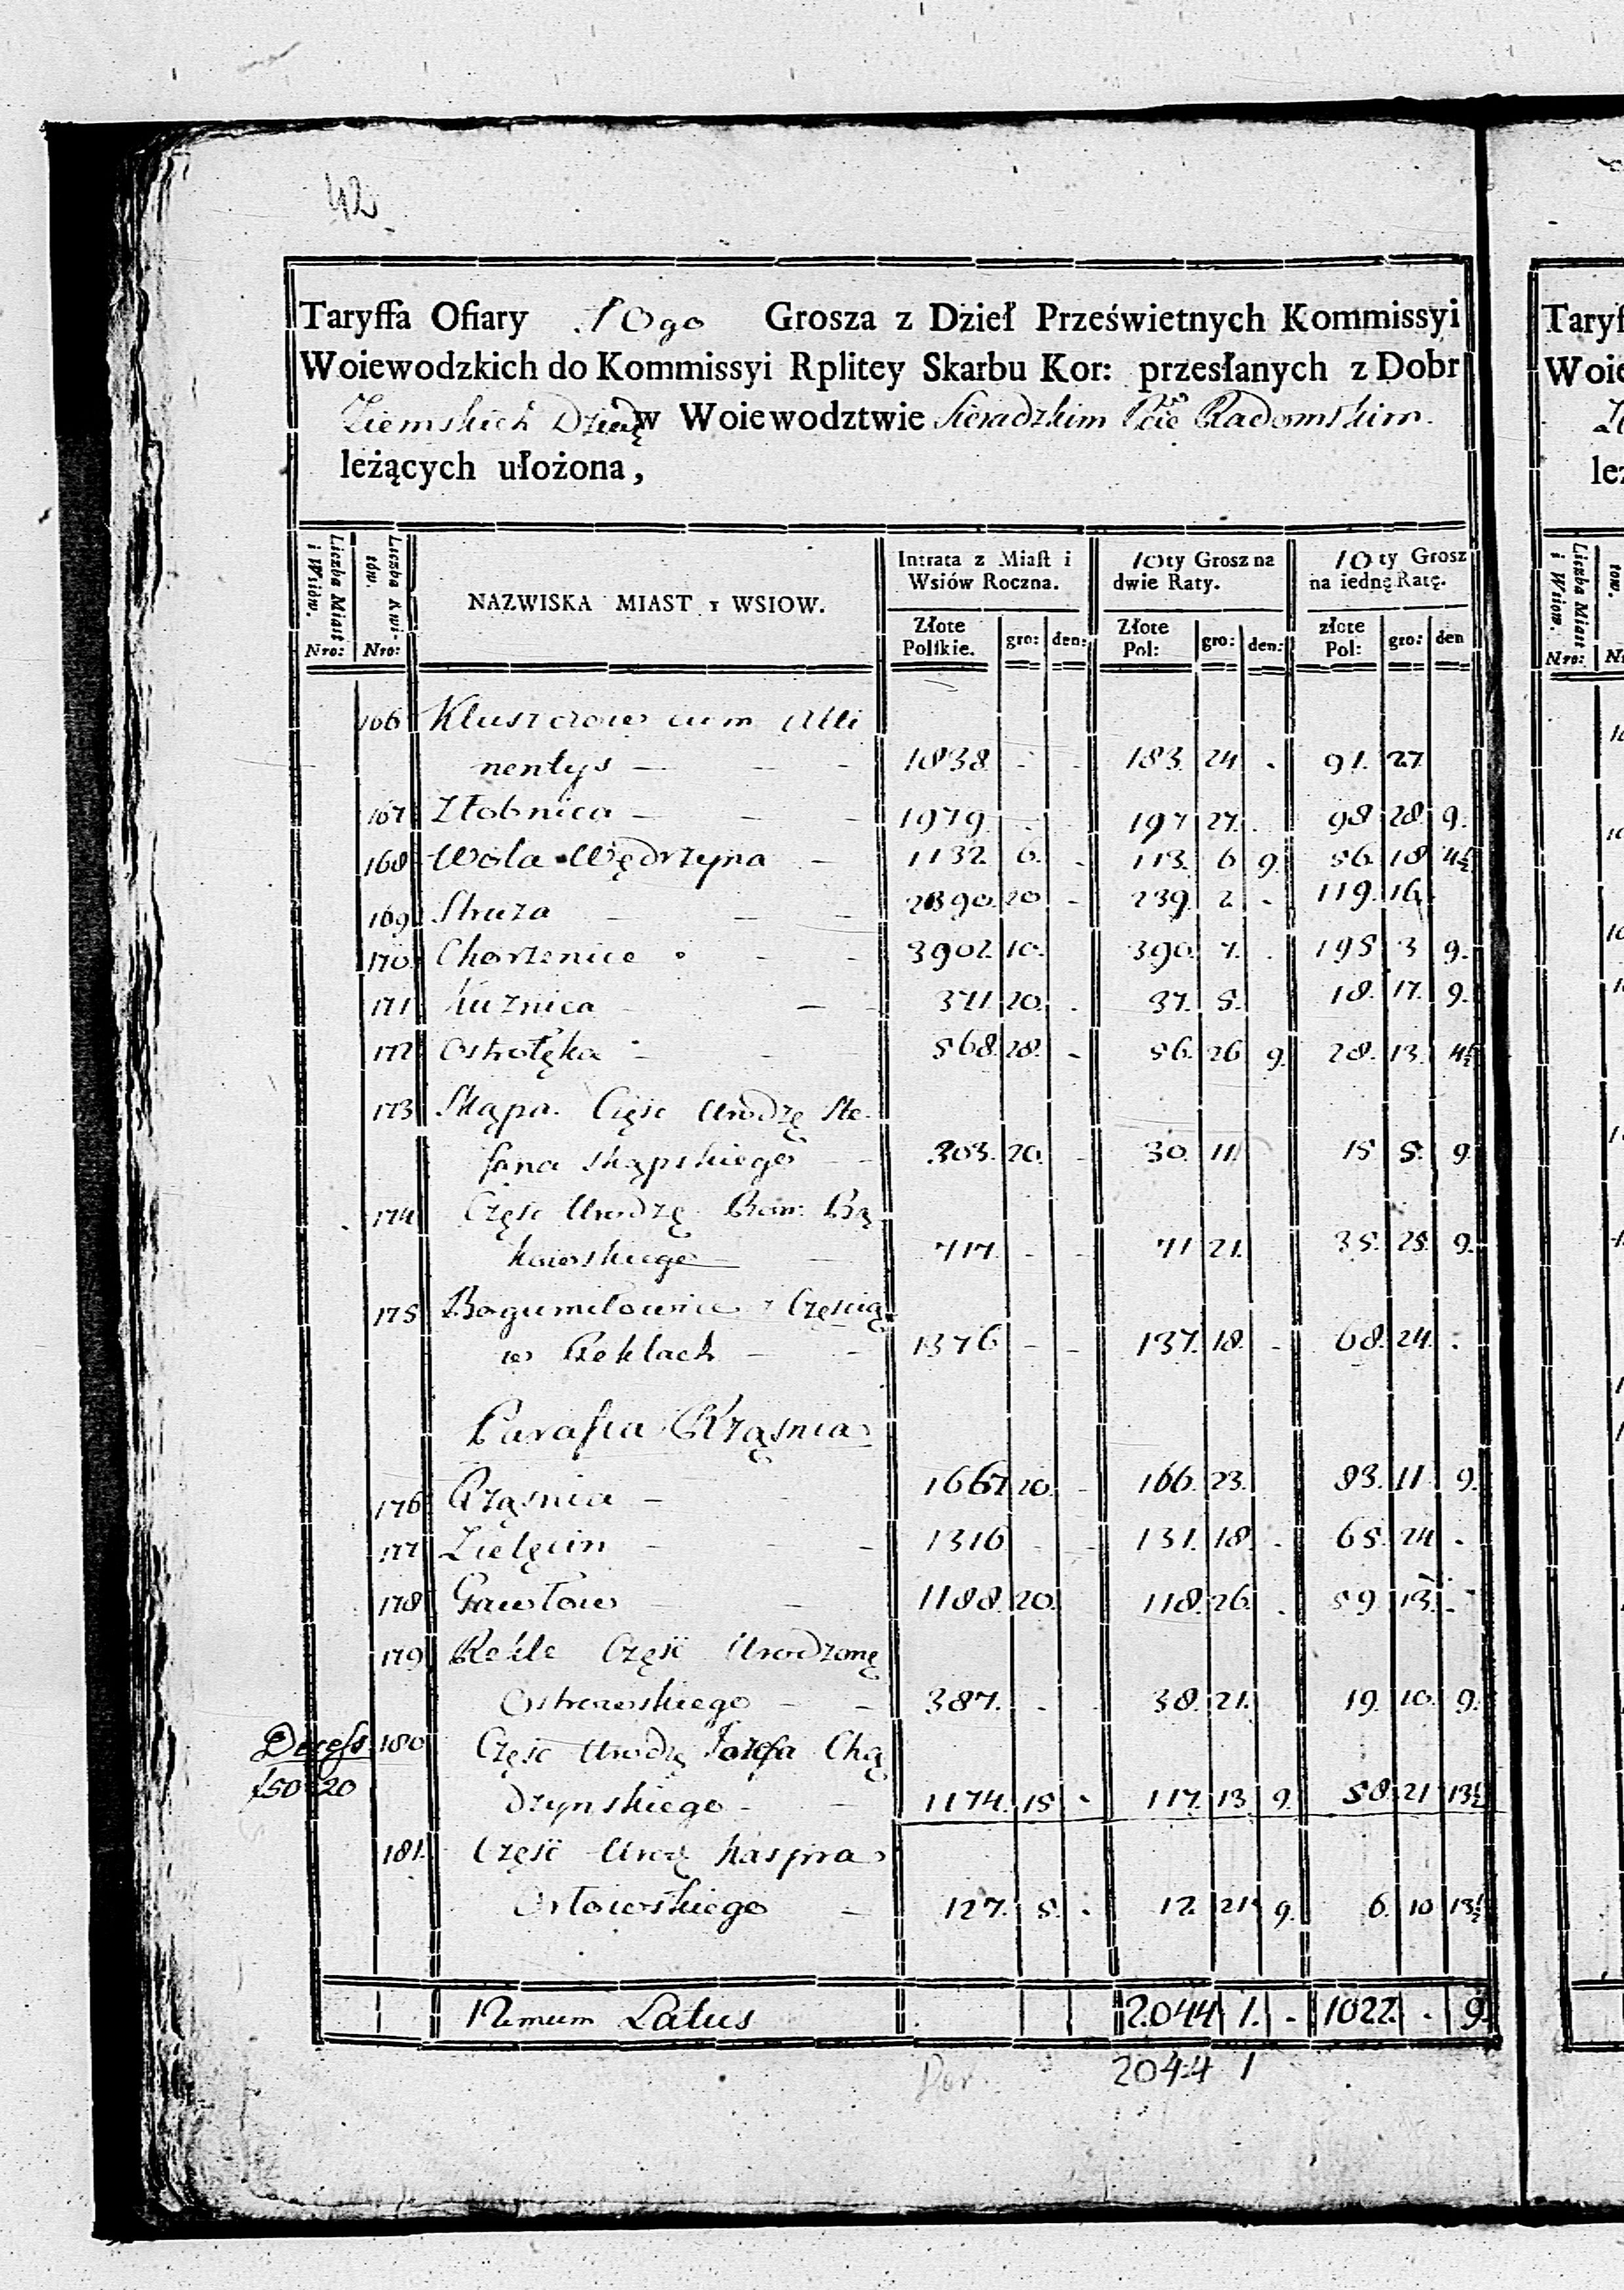 42
Taryffa Ofiary 10go Grosza z Dzieł Prześwietnych Kommissyi
Woiewodzkich do Kommissyi Rplitey Skarbu Kor: przesłanych z Dobr
Ziemskich Dzied w Woiewodztwie Sieradzkim Pcie Radomskim
leżących ułożona,
Liczba Miast i Wsiów. Nro: Liczba Kwitów. Nro: NAZWISKA MIAST y WSIOW. Intrata z Miast i Wsiów Roczna. Złote Polskie. gro: den: 10ty Grosz na dwie Raty. Złote Pol: gro: den: 10ty Grosz na iednę Ratę. złote Pol: gro: den
166 Kluszczow cum Atti
nentys — — - 1838 - - 183. 24 . 91. 27
167 Złobnica — — - 1979 . - 197 27. . 98 28 9.
168 Wola Wędrzyna — 1132. 6. - 113. 6 9. 56. 18 4½
169 Struza — — - 2390. 20 - 239. 2 - 119. 16.
170. Chorzenice - - 3902. 10. 390. 7. . 195 3 9.
171 Kuznica - — - 371. 20. . 37. 5. 18. 17. 9.
172 Ostrołęka - - - 568. 28. - 56. 26 9. 28. 13. 4½
173 Skąpa. Część Urodzę Ste-
fana Skąpskiego - - 303. 20. - 30. 11. 15 5. 9.
174 Część Urodzę Bon: Bą
kowskiego — 717. - - 71 21. 35. 25. 9.
175 Bogumiłowice z Częścią
w Reklach — - 1376 - - 137. 18. - 68. 24. .
Parafia Rząśnia
176 Rząśnia — - 1667 20. - 166. 23. 83. 11 9.
177 Zielęcin - - - 1316 - - 131. 18. . 65. 24 -
178 Gawłow - - 1188. 20. 118. 26. . 59. 13. -
179 Rekle Część Urodzonę
Ostrowskiego - - 387. . - 38. 21. 19. 10. 9.
Decess. 180 Część Urodzę Jozefa Chą
150 20
dzynskiego - - 1174. 15 . 117. 13 9. 58. 21 13½
181. Część Urodz Kaspra
Orłowskiego — 127. 5. . 12. 21 9. 6. 10 13½
12mum Latus . 2044 1. - 1022. . 9
2044 1